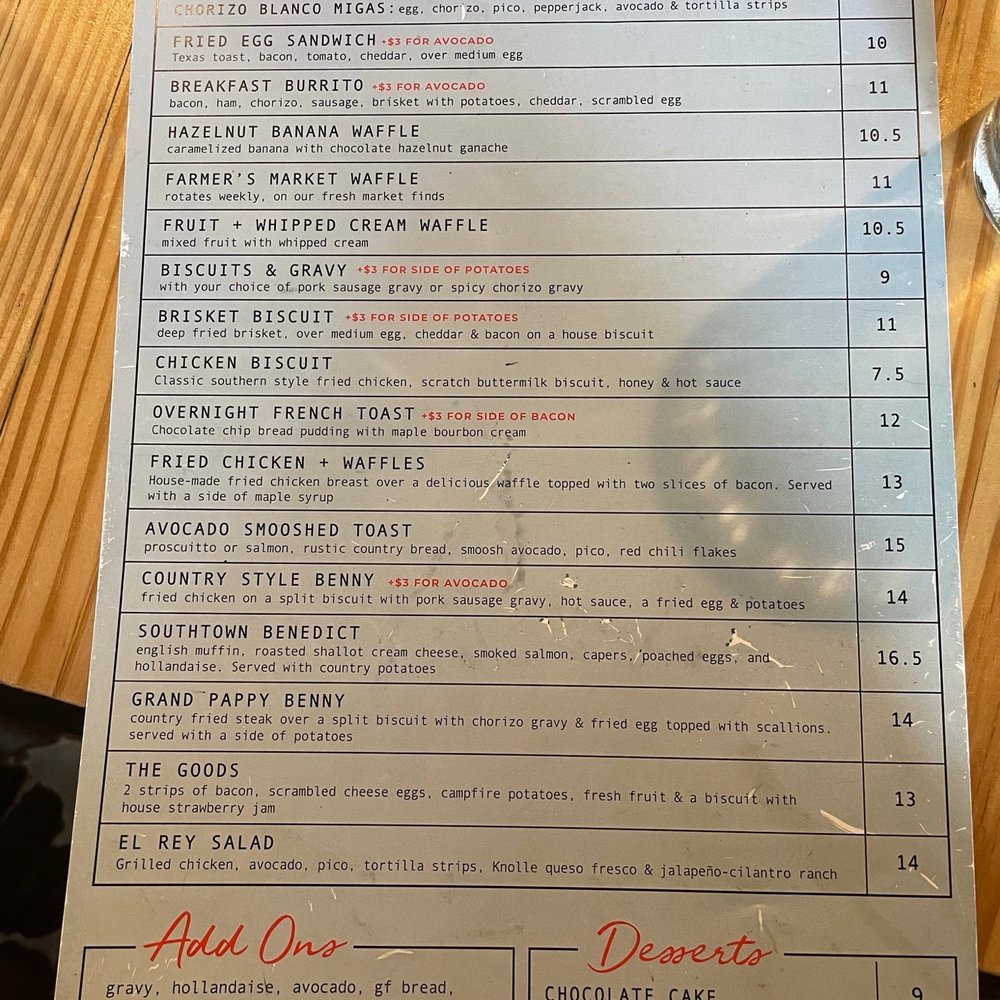 CHORIZO BLANCO MIGAS: egg, chorizo, pico, pepperjack, avocado & tortilla strips
FRIED EGG SANDWICH +$3 FOR AVOCADO 10
Texas toast, bacon, tomato, cheddar, over medium egg
BREAKFAST BURRITO +$3 FOR AVOCADO 11
bacon, ham, chorizo, sausage, brisket with potatoes, cheddar, scrambled egg
HAZELNUT BANANA WAFFLE 10.5
caramelized banana with chocolate hazelnut ganache
FARMER'S MARKET WAFFLE 11
rotates weekly, on our fresh market finds
FRUIT + WHIPPED CREAM WAFFLE 10.5
mixed fruit with whipped cream
BISCUITS & GRAVY +$3 FOR SIDE OF POTATOES 9
with your choice of pork sausage gravy or spicy chorizo gravy
BRISKET BISCUIT +$3 FOR SIDE OF POTATOES 11
deep fried brisket, over medium egg, cheddar & bacon on a house biscuit
CHICKEN BISCUIT 7.5
Classic southern style fried chicken, scratch buttermilk biscuit, honey & hot sauce
OVERNIGHT FRENCH TOAST +$3 FOR SIDE OF BACON 12
Chocolate chip bread pudding with maple bourbon cream
FRIED CHICKEN + WAFFLES 13
House-made fried chicken breast over a delicious waffle topped with two slices of bacon. Served
with a side of maple syrup
AVOCADO SMOOSHED TOAST 15
proscuitto or salmon, rustic country bread, smoosh avocado, pico, red chili flakes
COUNTRY STYLE BENNY +$3 FOR AVOCADO 14
fried chicken on a split biscuit with pork sausage gravy, hot sauce, a fried egg & potatoes
SOUTHTOWN BENEDICT 16.5
english muffin, roasted shallot cream cheese, smoked salmon, capers, poached eggs, and
hollandaise. Served with country potatoes
GRAND PAPPY BENNY 14
country fried steak over a split biscuit with chorizo gravy & fried egg topped with scallions.
served with a side of potatoes
THE GOODS 13
2 strips of bacon, scrambled cheese eggs, campfire potatoes, fresh fruit & a biscuit with
house strawberry jam
EL REY SALAD 14
Grilled chicken, avocado, pico, tortilla strips, Knolle queso fresco & jalapeño-cilantro ranch
Add Ons
gravy, hollandaise, avocado, gf bread,
Desserts
CHOCOLATE CAKE 9